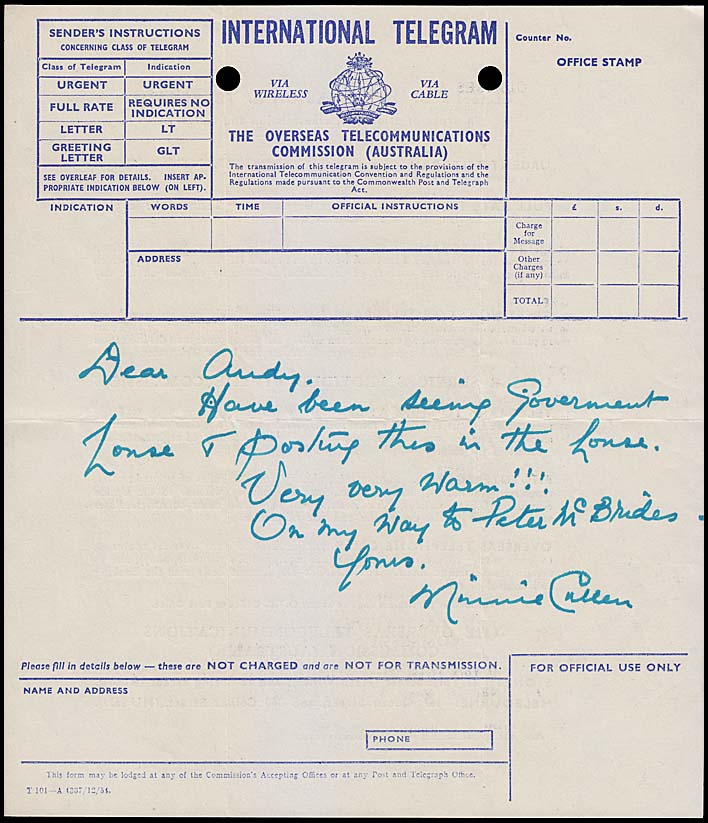 SENDER'S INSTRUCTIONS
CONCERNING CLASS OF TELEGRAM
Class of Telegram Indication
URGENT URGENT
FULL RATE REQUIRES NO INDICATION
LETTER LT
GREETING LETTER GLT
SEE OVERLEAF FOR DETAILS. INSERT AP-
PROPRIATE INDICATION BELOW (ON LEFT).
INTERNATIONAL TELEGRAM
VIA WIRELESS
VIA CABLE
THE OVERSEAS TELECOMMUNICATIONS
COMMISSION (AUSTRALIA)
The transmission of this telegram is subject to the provisions of the
International Telecommunication Convention and Regulations and the
Regulations made pursuant to the Commonwealth Post and Telegraph
Act.
Counter No.
OFFICE STAMP
INDICATION WORDS TIME OFFICIAL INSTRUCTIONS £ s. d.
Charge for Message
ADDRESS
Other Charges (if any)
TOTAL
Dear Andy.
Have been seeing Goverment
House & posting this in the house.
Very very warm!!!
On my way to Peter McBrides.
Yours.
Minnie Cullen
Please fill in details below — these are NOT CHARGED and are NOT FOR TRANSMISSION.
FOR OFFICIAL USE ONLY
NAME AND ADDRESS
PHONE
This form may be lodged at any of the Commission's Accepting Offices or at any Post and Telegraph Office.
T 101—A 4337/12/54.